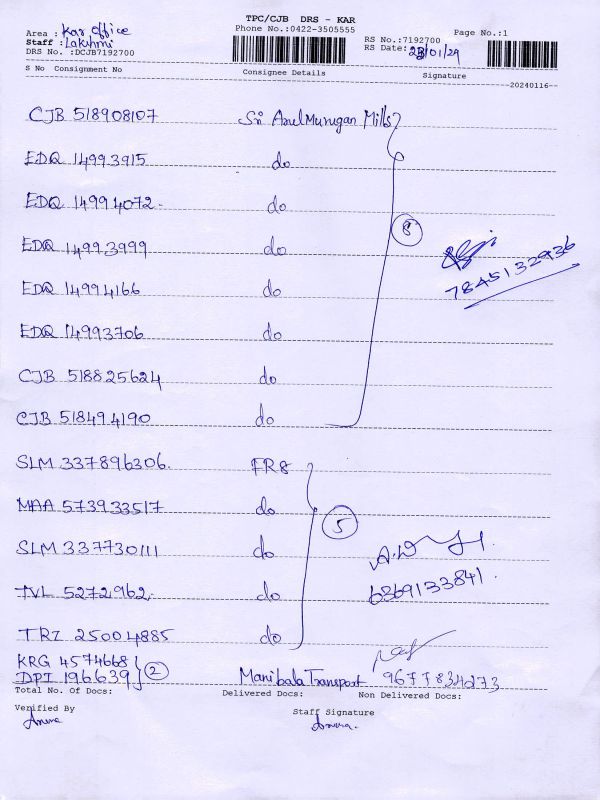 TPC/CJB DRS - KAR
Area : Kar office
Phone No.:0422-3505555
Page No.:1
Staff : Lakshmi
RS No.:7192700
DRS No. :DCJB7192700
RS Date: 23/01/24
S No Consignment No Consignee Details Signature
20240116
CJB 518908107 Sri Arul Murugan Mills
EDQ 14993915 do
EDQ 14994072 do
EDQ 14993999 do 8
7845132936
EDQ 14994166 do
EDQ 14993706 do
CJB 518825624 do
CJB 518494190 do
SLM 337896306 FR8
MAA 573933517 do 5
SLM 337730111 do
TVL 5272962 do 6369133841
TRZ 25004885 do
KRG 4574668
DPI 196639 2 Manibala Transport 9677834273
Total No. Of Docs: Delivered Docs: Non Delivered Docs:
Verified By Staff Signature